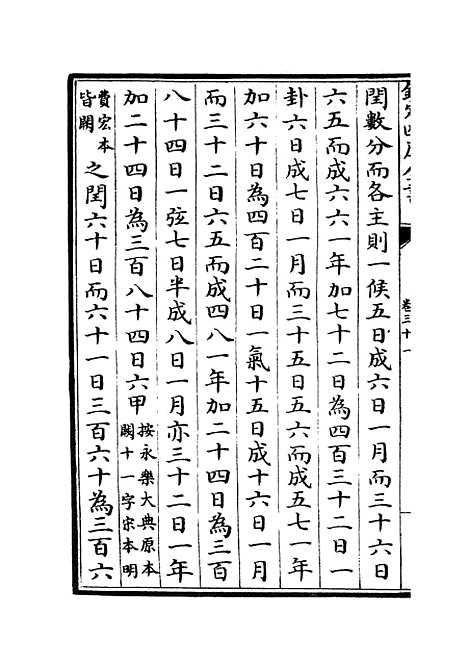 欽定四庫全書
卷三十一
閏數分而各主則一候五日成六日一月而三十六日
六五而成六六一年加七十二日為四百三十二日一
卦六日成七日一月而三十五日五六而成五七一年
加六十日為四百二十日一氣十五日成十六日一月
而三十二日六五而成四八一年加二十四日為三百
八十四日一弦七日半成八日一月亦三十二日一年
加二十四日為三百八十四日六甲按永樂大典原本闕十一字宋本明
費宏本皆闕之閏六十日而六十一日三百六十為三百六